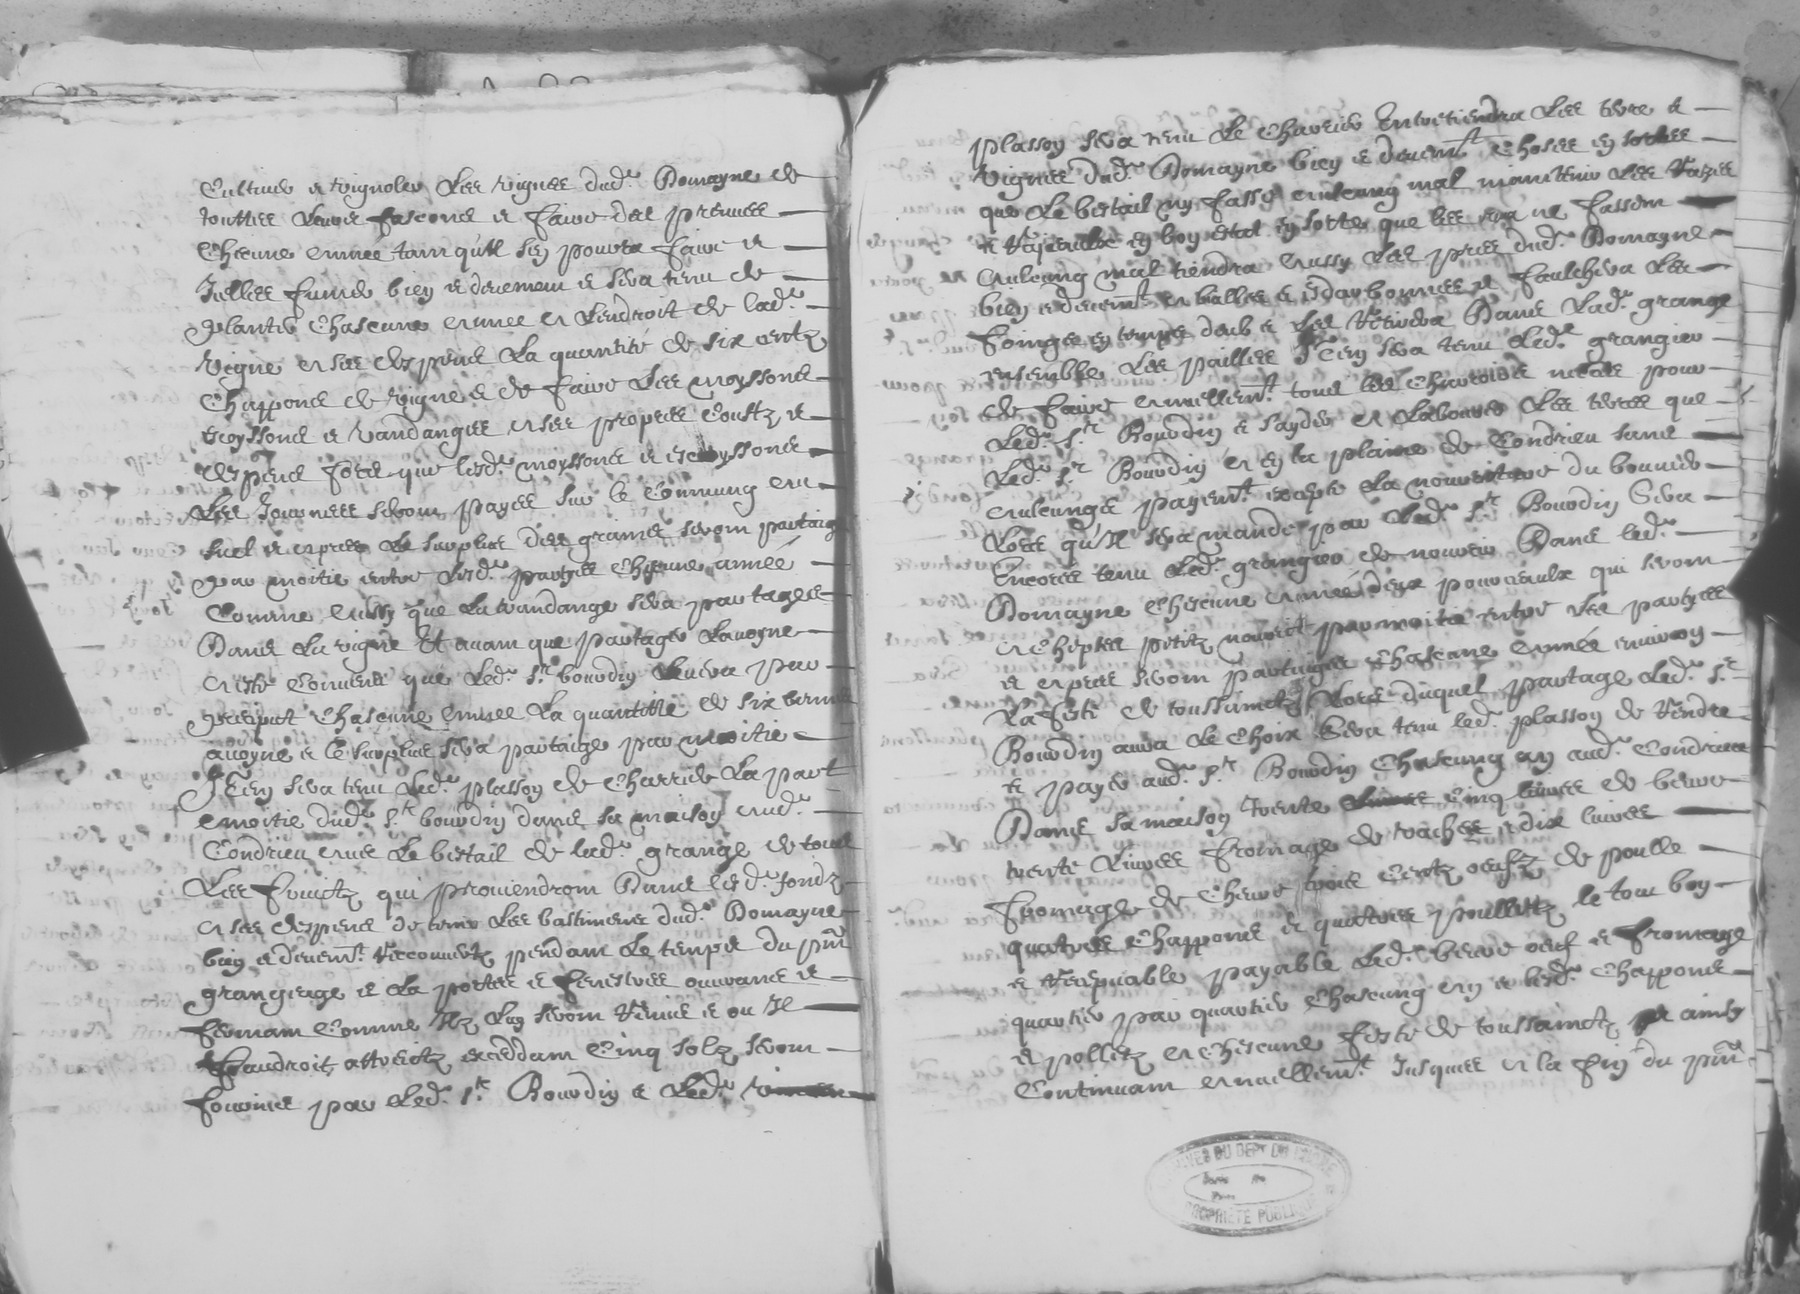 Cultiver et vignoler les vignes dud.t Domayne de
touttes leurs fascons et faire des preuves
Chescune annee tant qu'il sen pourra faire et
Icelles fumer bien et deuement et sera tenu de
planter Chascune annee a lendroit de lad.e
Vigne a ses despens la quantité de six centz
Chappons de vigne et de faire les moyssons
escyssons et vandanges a ses propres Coustz et
despens fors que lesd. moyssons et escoyssons
les Journees seront payes sur le Commung
et apres le surplus des grains seront partaige
par moitie entre lesd. partyes Chescune année
Comme aussy que la vandange sera partagee
Dans la vigne Et avant que partager lavoyne
a esté Convenu que led.t S.r bourdin levera par
preciput Chascune annee la quantitté de six
avoyne et le surplus sera partaige par moitie
Item sera tenu led.t plasson de Charrier la part
et moitie dud.t S.r bourdin dans sa maison aud.t
Condrieu avec le bestail de lad.e grange de tous
les fruictz qui proviendront Dans lesd. fondz
a ses despens de tenir les bastimens dud.t Domayne
bien et deuem.t recouvertz pendant le temps du pnt
grangeage et la portes et fenestres ouvrans et
fermant Comme Ilz luy seront remis et ou Il
faudroit attraictz excedant Cinq solz seront
fournis par led.t S.r Bourdin et led.t
plasson sera tenu le Charier Entretiendra les terre et
vignes dud.t Domayne bien et deuem.t Closes en sortes
que le bestail ny fasse aulcung mal maintenir les razes
et en bon estat en sorte que les eaux ne fassent
aulcung mal tiendra aussy les prés dud.t Domayne
bien et deuem.t et faulchera les
foings en temps deub et les retirera Dans lad.e grange
ensemble les pailles Item sera tenu led.t grangier
de faire annuellem.t tous les Charrois necess.es pour
led.t S.r Bourdin et sayder a labourer les terres que
led.t S.r Bourdin a en la plaine de Condrieu sans
aulcungs payem.t excepté la nourriture du bouvier
lors qu'Il sera mandé par led.t S.r Bourdin Sera
Encores tenu led.t grangier de nourrir Dans led.t
Domayne Chescune année deux pourceaulx qui seront
acheptes petitz par moitié entre les partyes
et apres seront partaiges Chascune année environ
la feste de toussainctz lors duquel partage led.t S.r
Bourdin aura le Choix Sera tenu led.t plasson de rendre
et payer aud.t S.r Bourdin Chascung an aud.t Condrieu
Dans sa maison trente Cinq livres de beurre
trente livres fromage de vaches et dix livres
fromage de Chevre trois Centz oeufz de poulle
quattres Chappons et quattres poullettz le tout bon
et recepvable payable led.t beure oeuf et fromage
quartier par quartier Chascung an et lesd. Chappons
et polletz a Chescune feste de toussainctz et ainsy
Continuant annuellem.t Jusques a la fin du pnt
ARCHIVES DU DEPT DU RHONE
PROPRIETE PUBLIQUE